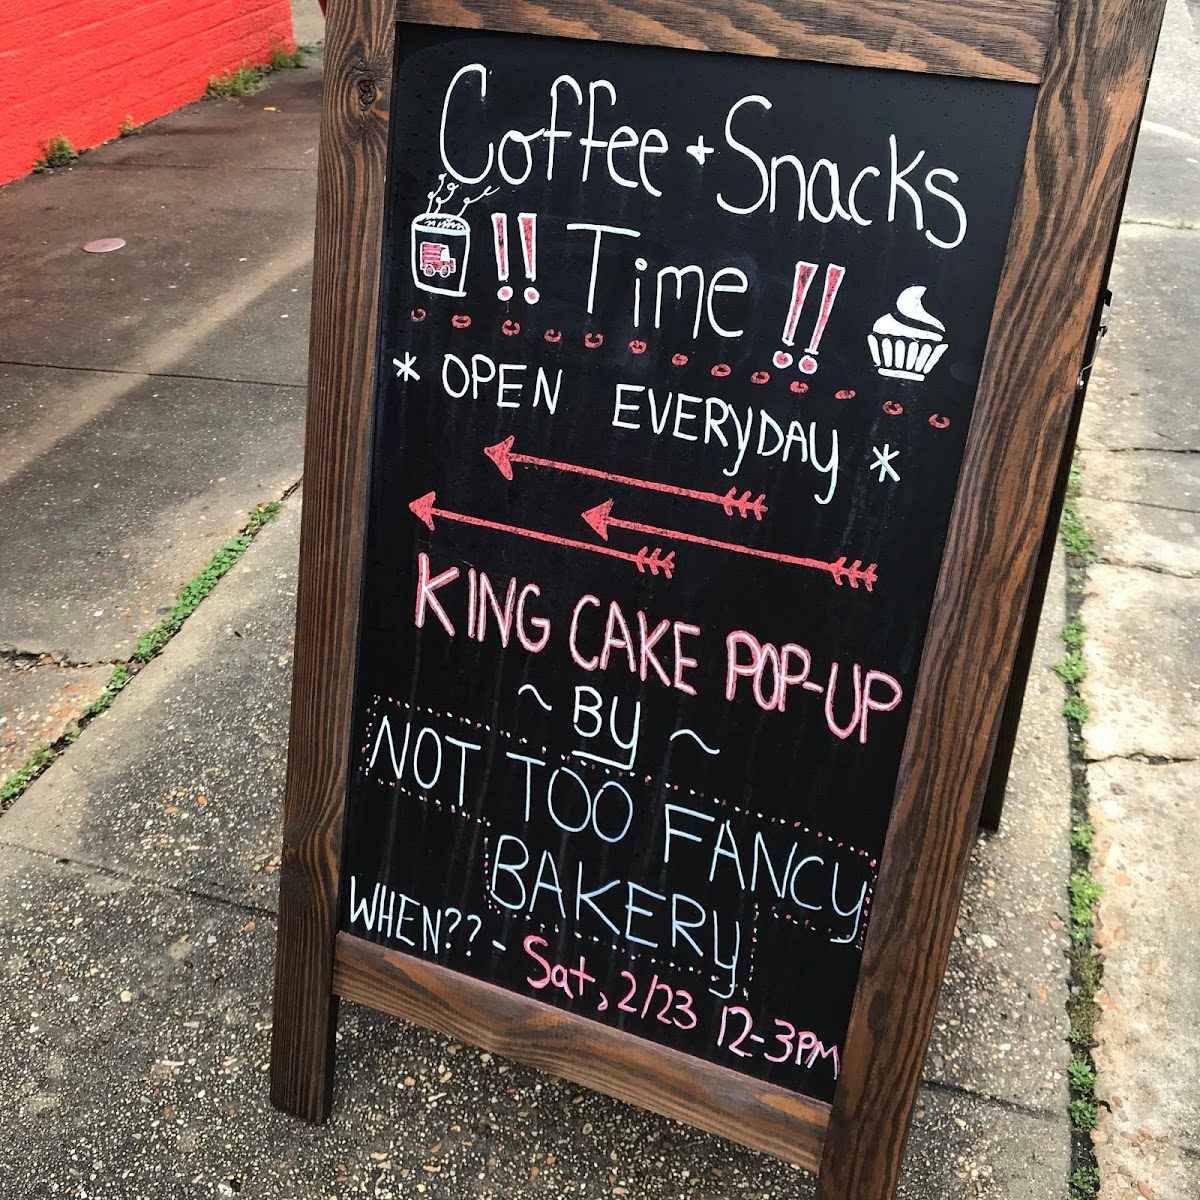 Coffee + Snacks
!! Time !!
* OPEN EVERYDAY *
KING CAKE POP-UP
~ BY ~
NOT TOO FANCY
BAKERY
WHEN?? - Sat, 2/23 12-3PM